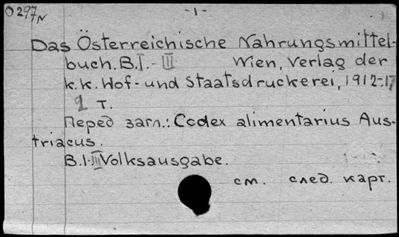 O 297/N
- 1 -
Das Österreichische Nahrungsmittel-
buch. B.I.-III Wien, Verlag der
k.k. Hof- und Staatsdruckerei, 1912-17
2 т.
Перед загл.: Codex alimentarius Aus-
triacus.
B.I-III Volksausgabe.
см. след. карт.